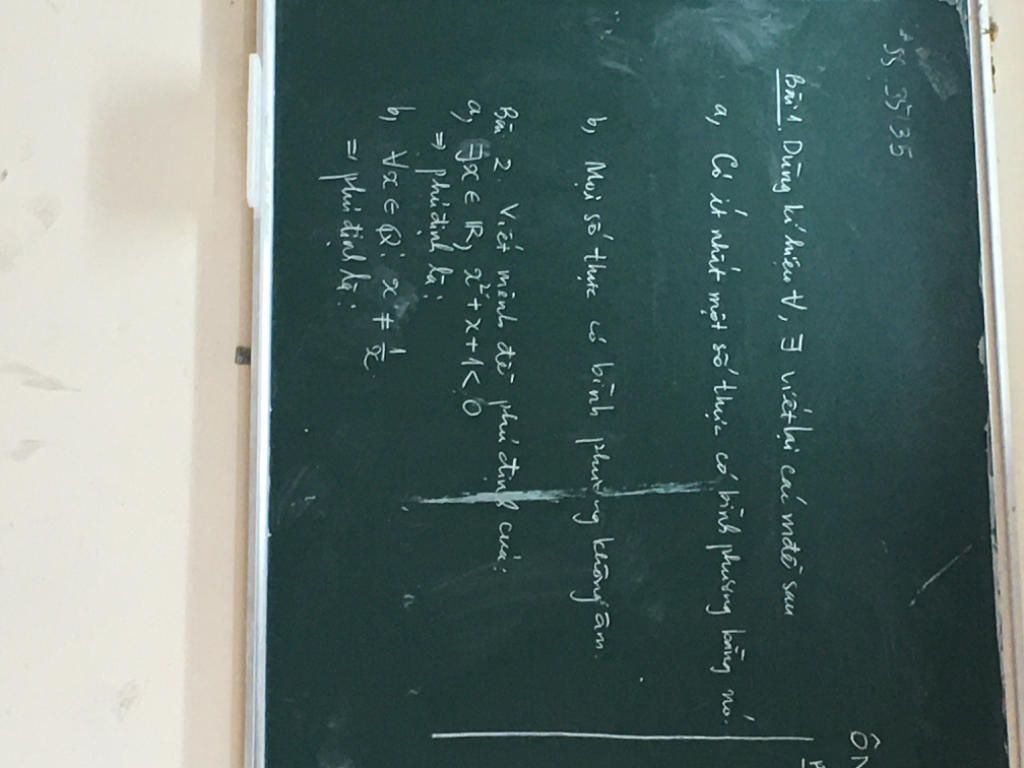 35 35
Bài 1. Dùng kí hiệu ∀, ∃ viết lại các mđề sau
a, Có ít nhất một số thực có bình phương bằng nó.
b, Mọi số thực có bình phương không âm.
Bài 2. Viết mệnh đề phủ định của:
a, ∃x ∈ ℝ, x² + x + 1 < 0
⇒ phủ định là:
b, ∀x ∈ ℚ: x ≠ 1/x
⇒ phủ định là:
ÔN